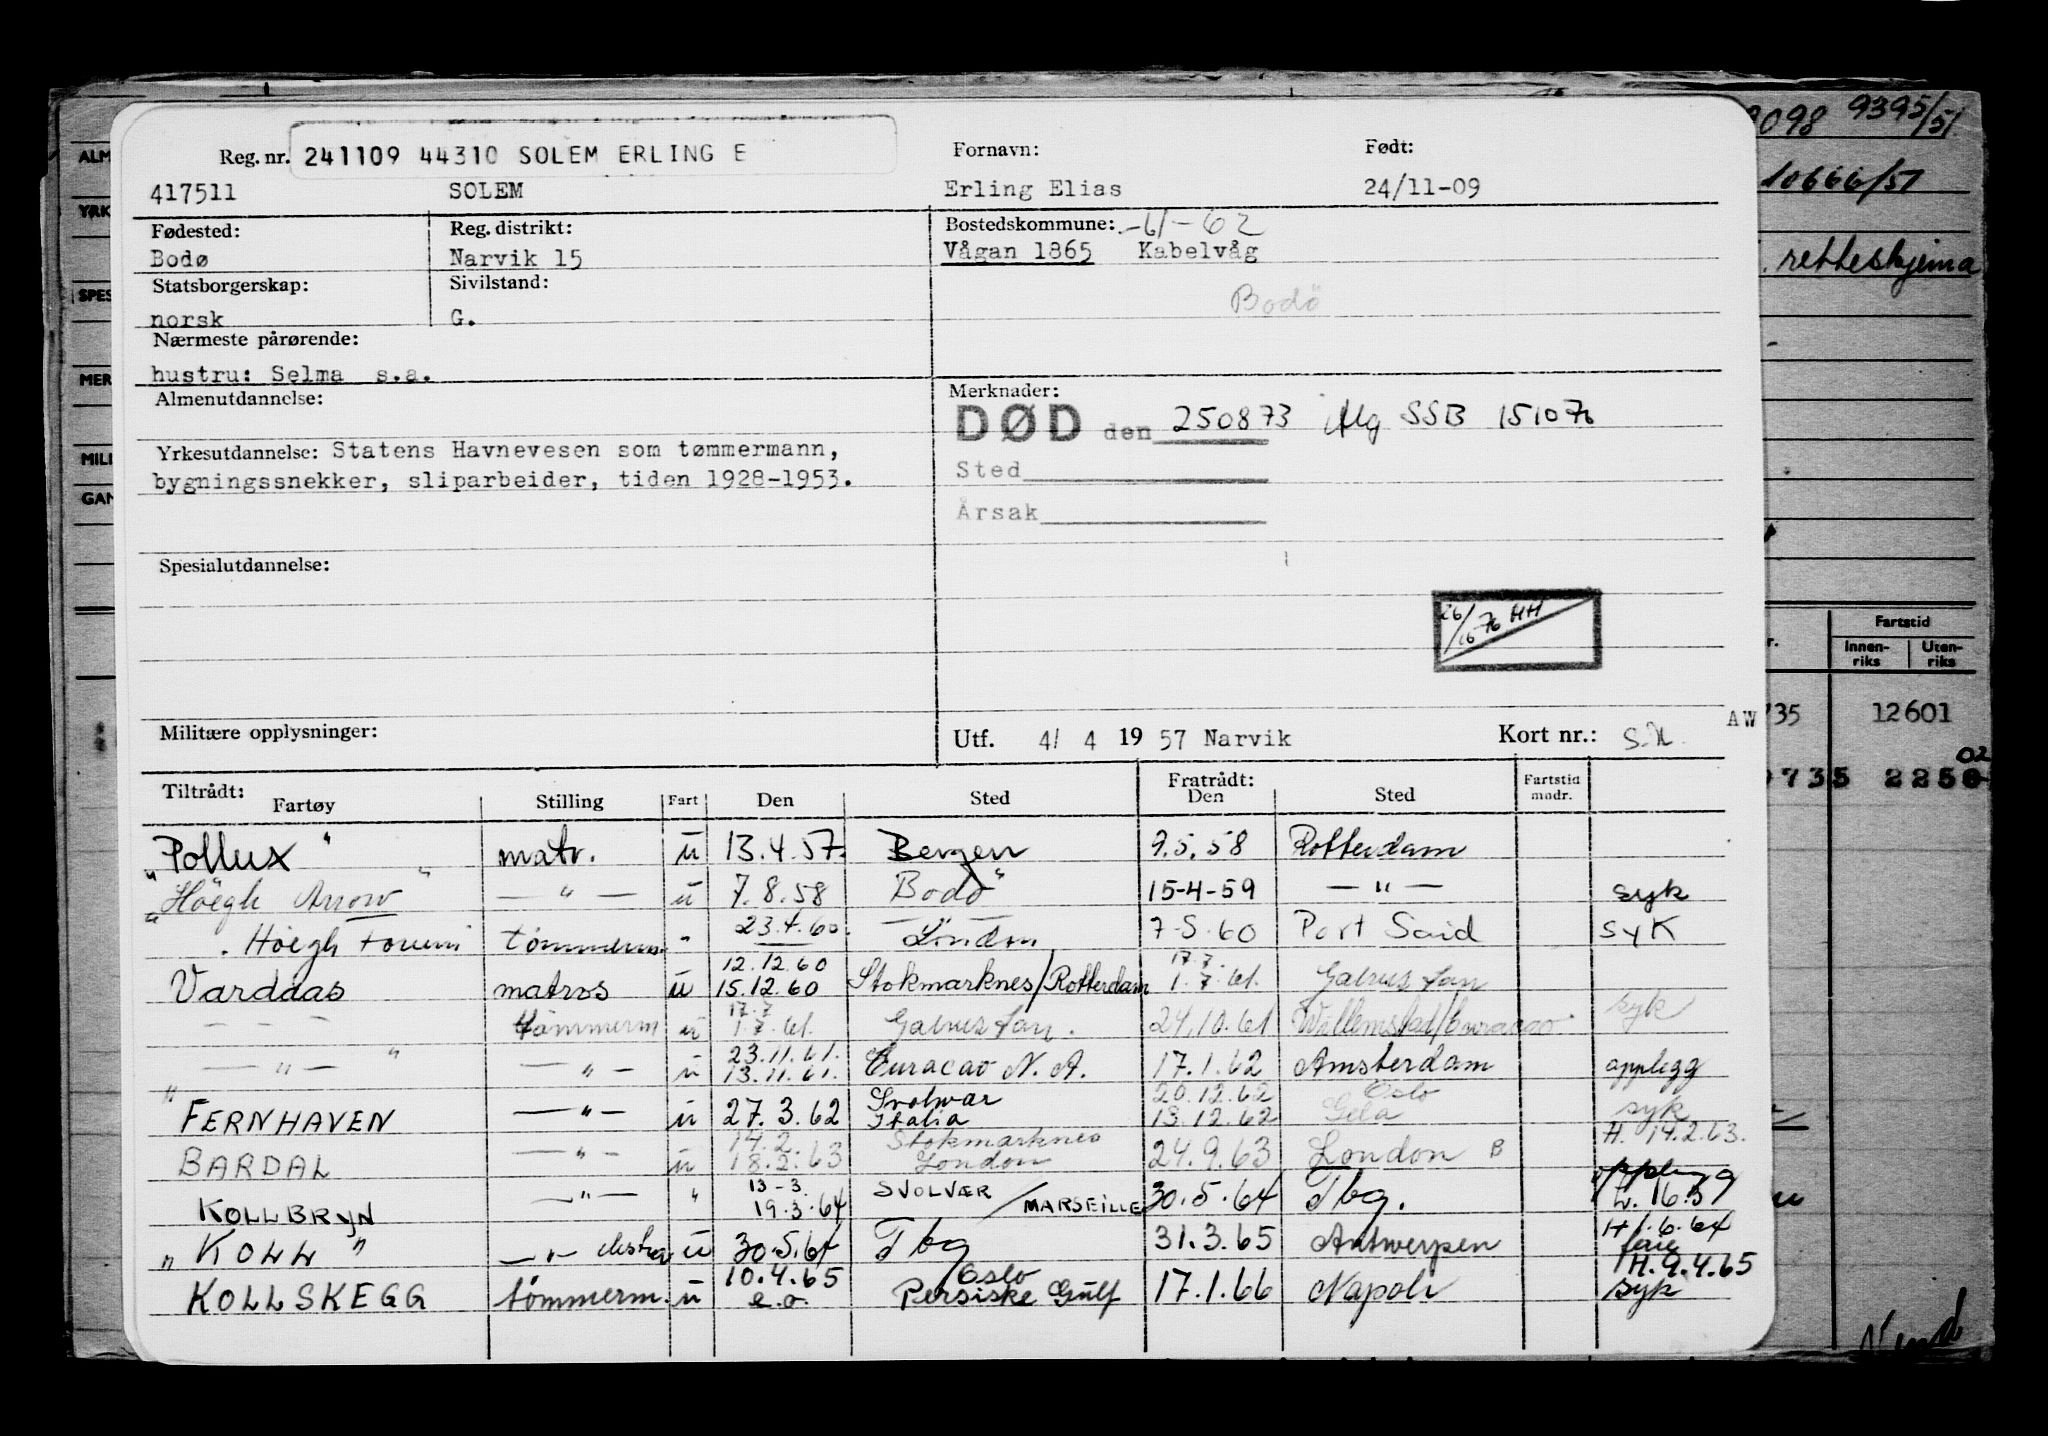 Reg. nr. 241109 44310 SOLEM ERLING E Fornavn: Født:
417511 SOLEM Erling Elias 24/11-09
Fødested: Reg. distrikt: Bostedskommune: -61-62
Bodø Narvik 15 Vågan 1865 Kabelvåg
Statsborgerskap: Sivilstand: Bodö
norsk G.
Nærmeste pårørende:
hustru: Selma s.a.
Almenutdannelse: Merknader:
DØD den 250873 Mlg SSB 151076
Yrkesutdannelse: Statens Havnevesen som tømmermann,
bygningssnekker, sliparbeider, tiden 1928-1953.
Sted
Årsak
Spesialutdannelse:
26/10 76 HH
Militære opplysninger: Utf. 4/ 4 19 57 Narvik Kort nr.: S.N. AW
Tiltrådt: Fratrådt:
Fartøy Stilling Fart Den Sted Den Sted Fartstid mndr.
"Pollux" matr. u 13.4.57. Bergen 9.5.58 Rotterdam
"Höegh Arrow" — " — u 7.8.58 Bodö 15-4-59 — " — syk
" Höegh tømmerm. " 23.4.60. London 7-5-60 Port Said syk
12.12.60 17.7.
Vardaas matros u 15.12.60 Stokmarknes/Rotterdam 1.7.61.
17.7
— — — tømmerm u 1.7.61. 24.10.61 Willemstad/Curacao syk
23.11.61.
— " — " — " — u 13.11.61. Curacao N. A. 17.1.62 Amsterdam opplegg
Svolvær 20.12.62 Oslo
"FERNHAVEN — " — u 27.3.62 Italia 13.12.62 Gela syk
14.2. Stokmarknes H. 14.2.63.
BARDAL — " — u 18.2.63 London 24.9.63 London B
13-3 SVOLVÆR
KOLLBRYN — " — " 19.3.64 / MARSEILLE 30.5.64 Tbg. L. 16.3
H 1.6.64
"KOLL" — " — ekstra u 30.5.64 Tbg 31.3.65 Antwerpen ferie
10.4.65 Oslo H. 9.4.65
KOLLSKEGG tømmerm. u e.o. Persiske Gulf 17.1.66 Napoli syk
9395/51
10666/51
retteskjema
Fartstid
Innen-riks Uten-riks
735 12601
735 2250 02
ALM
YRK
SPES
MER
MILI
GAN